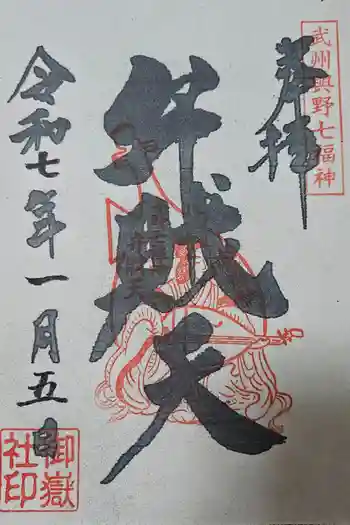 武州與野七福神
奉拝
弁戝天
令和七年一月五日
御嶽
社印